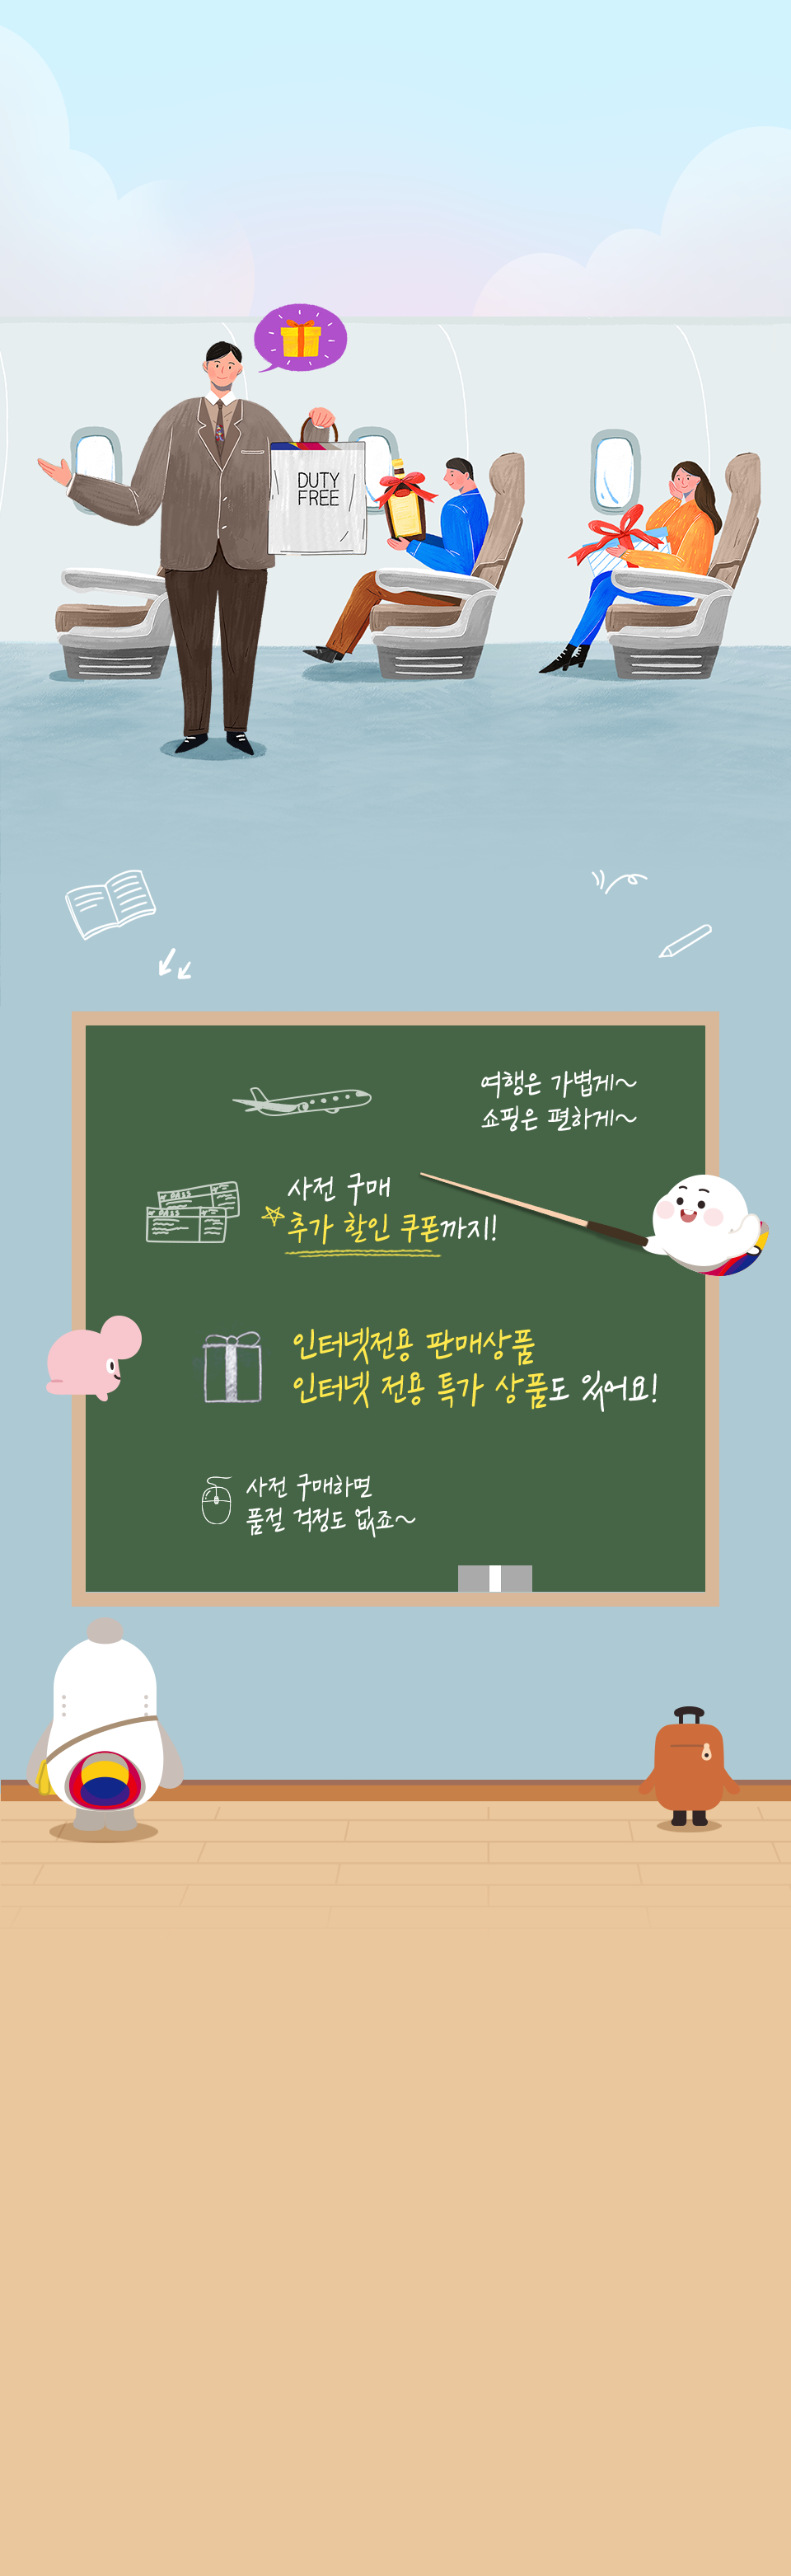 DUTY
FREE
여행은 가볍게~
쇼핑은 편하게~
PASS
PASS
사전 구매
추가 할인 쿠폰까지!
인터넷전용 판매상품
인터넷 전용 특가 상품도 있어요!
사전 구매하면
품절 걱정도 없죠~